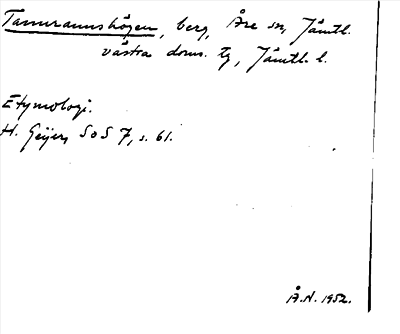 Tamraunshögen, berg, Åre sn, Jämtl.
västra doms. tg, Jämtl. l.
Etymologi.
H. Geijer, SoS 7, s. 61.
Å.N. 1952.